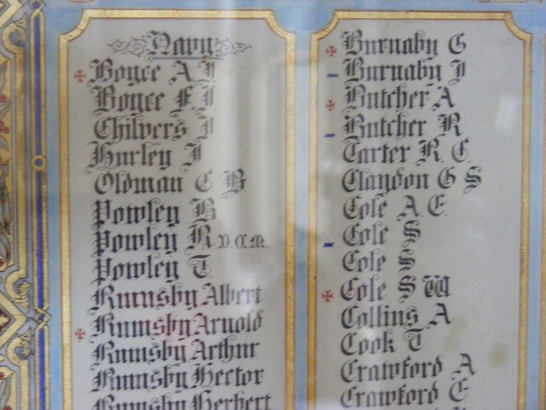 Navy
Boyce A J
Boyce F J
Chilvers J
Hurley J
Oldman C B
Powley B
Powley R D.C.M.
Powley T
Rumsby Albert
Rumsby Arnold
Rumsby Arthur
Rumsby Hector
Rumsby Herbert
Burnaby G
Burnaby J
Butcher A
Butcher R
Carter R. C.
Claydon G S
Cole A E.
Cole S
Cole S
Cole S W
Collins A
Cook T
Crawford A
Crawford E